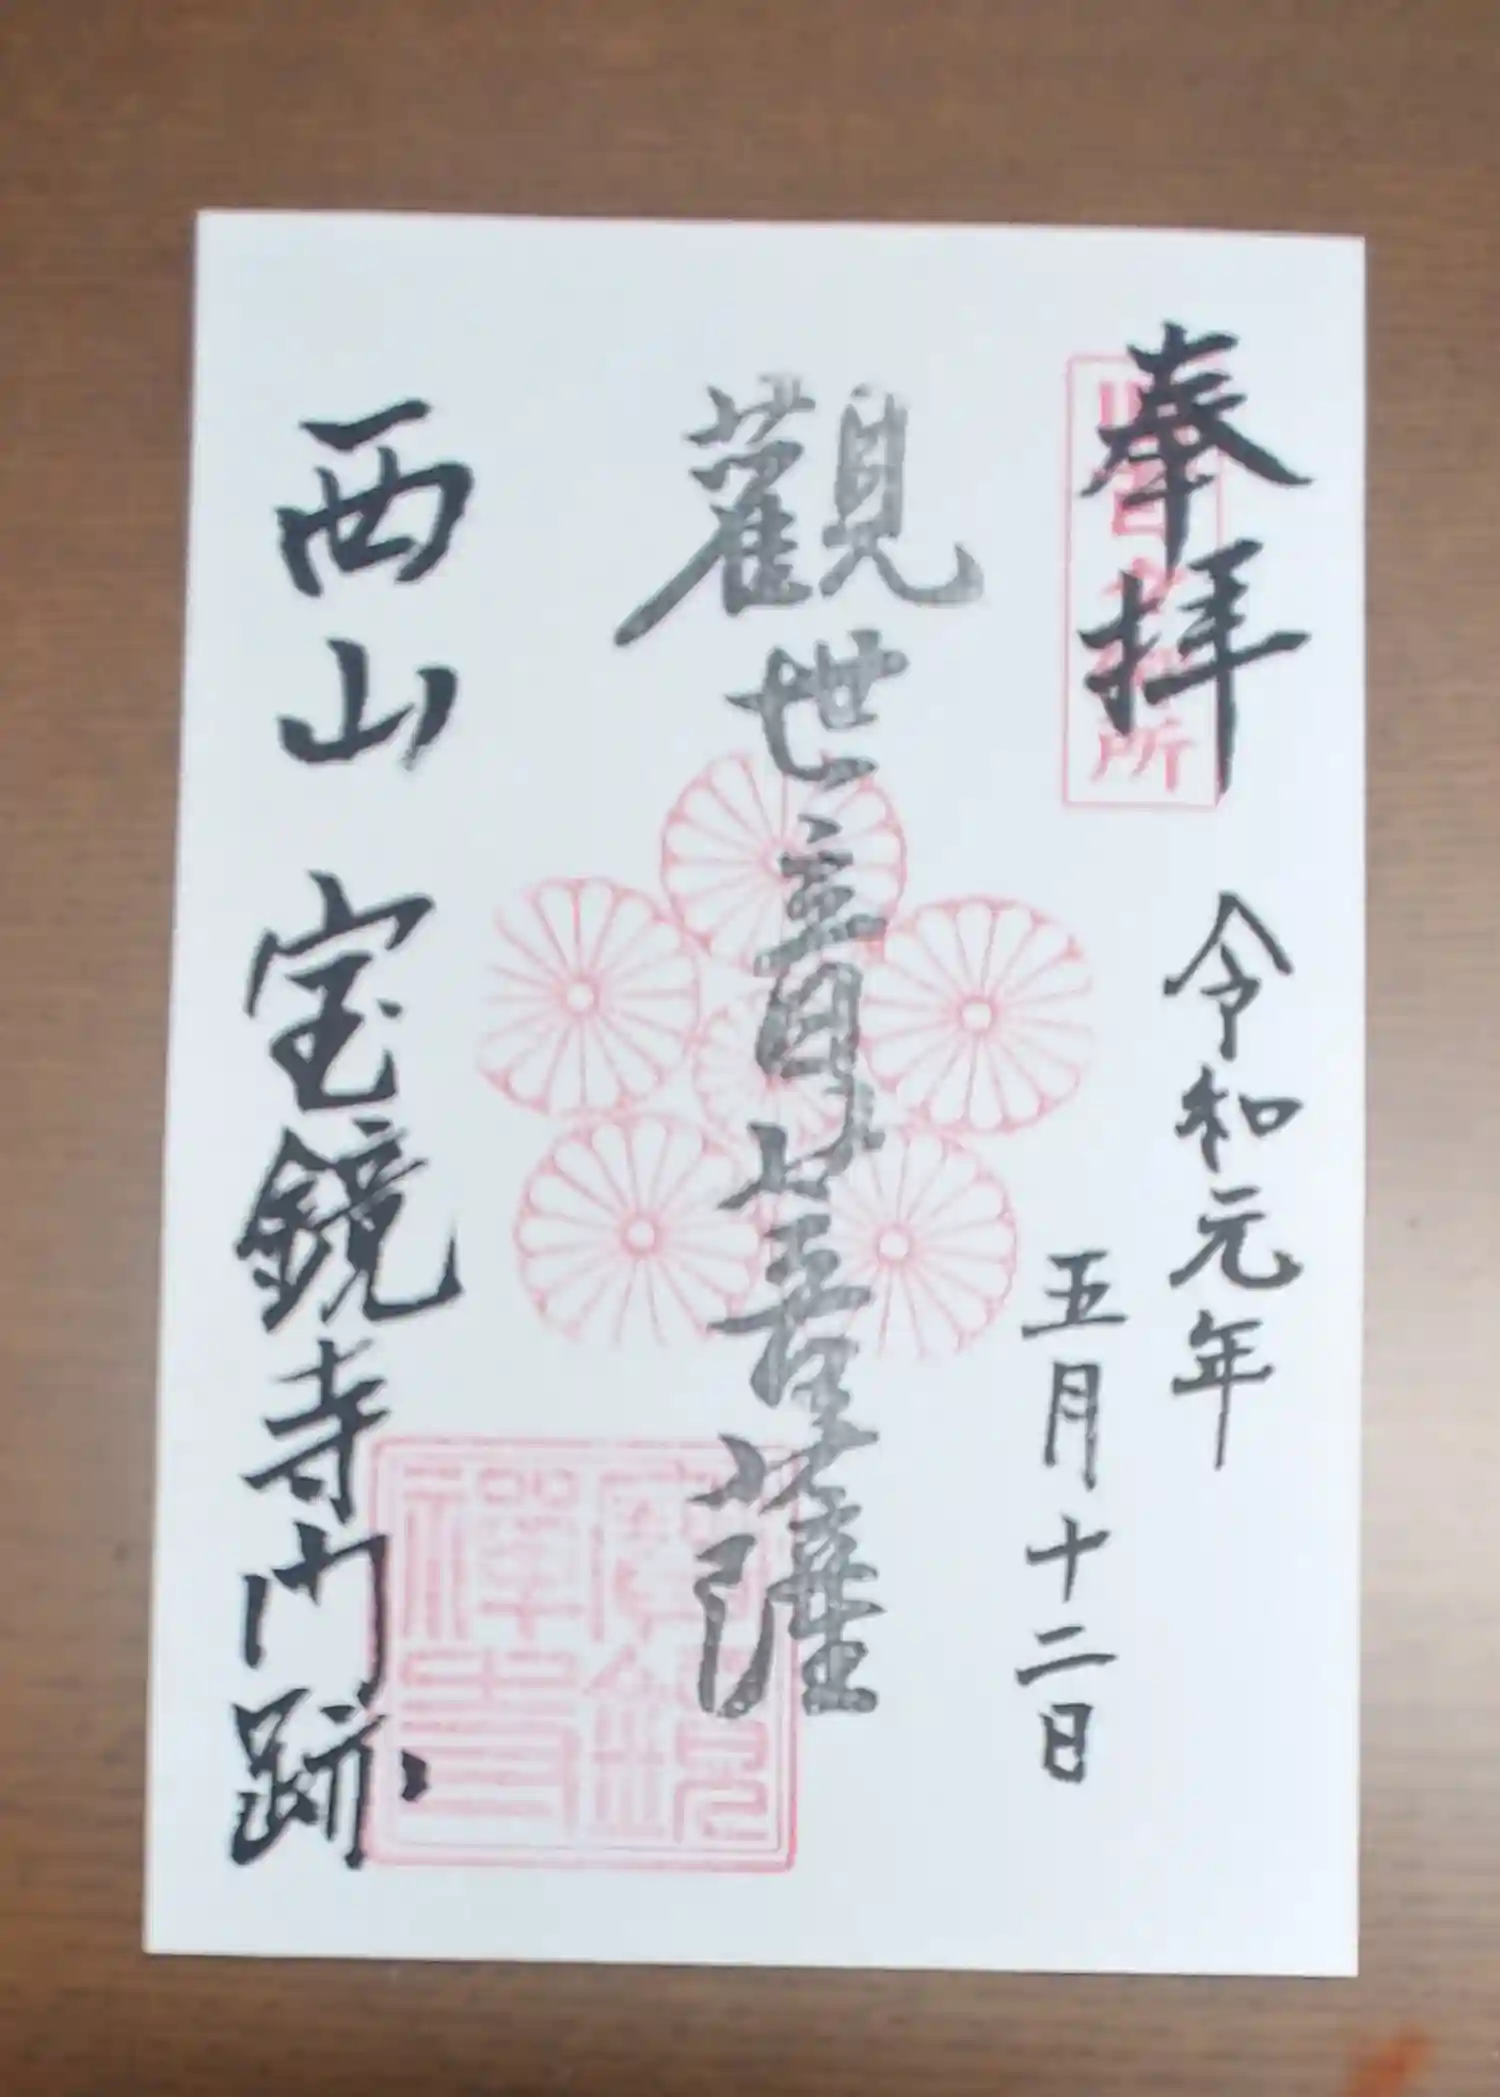 奉拝
令和元年
五月十二日
觀世音菩薩
西山
宝鏡寺門跡